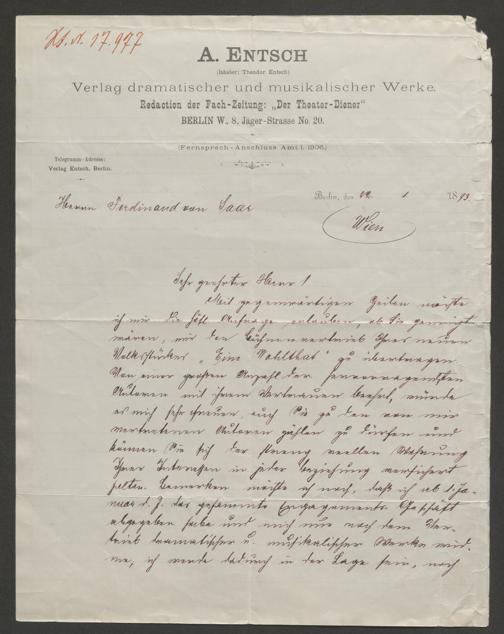 A. ENTSCH
(Inhaber: Theodor Entsch)
Verlag dramatischer und musikalischer Werke.
Redaction der Fach-Zeitung: „Der Theater-Diener“
BERLIN W., 8, Jäger-Strasse No. 20.
(Fernsprech-Anschluss Amt I. 1306)
Telegramm-Adresse:
Verlag Entsch, Berlin.
Berlin, den 1 1893
Herrn Ferdinand von Saar
Wien
Sehr geehrter Herr!
Mit gegenwärtigen Zeilen möchte
ich mir die höfl Anfrage erlauben, ob Sie geneigt
wären, mir den Bühnenvertrieb Ihres neuen
Volksstückes „Eine Wohlthat“ zu übertragen.
Von einer großen Anzahl der hervorragendsten
Autoren mit ihrem Vertrauen beehrt, würde
es mich sehr freuen, auch Sie zu den von mir
vertretenen Autoren zählen zu dürfen und
können Sie sich der streng reellen Wahrung
Ihrer Interessen in jeder Beziehung versichert
halten. Bemerken möchte ich noch, daß ich ab 1 Ja-
nuar d. J. das gesammte Engagements Geschäft
abgegeben habe und mich nur noch dem Ver-
trieb dramatischer u. musikalischer Werke wid-
me, ich werde dadurch in der Lage sein, noch